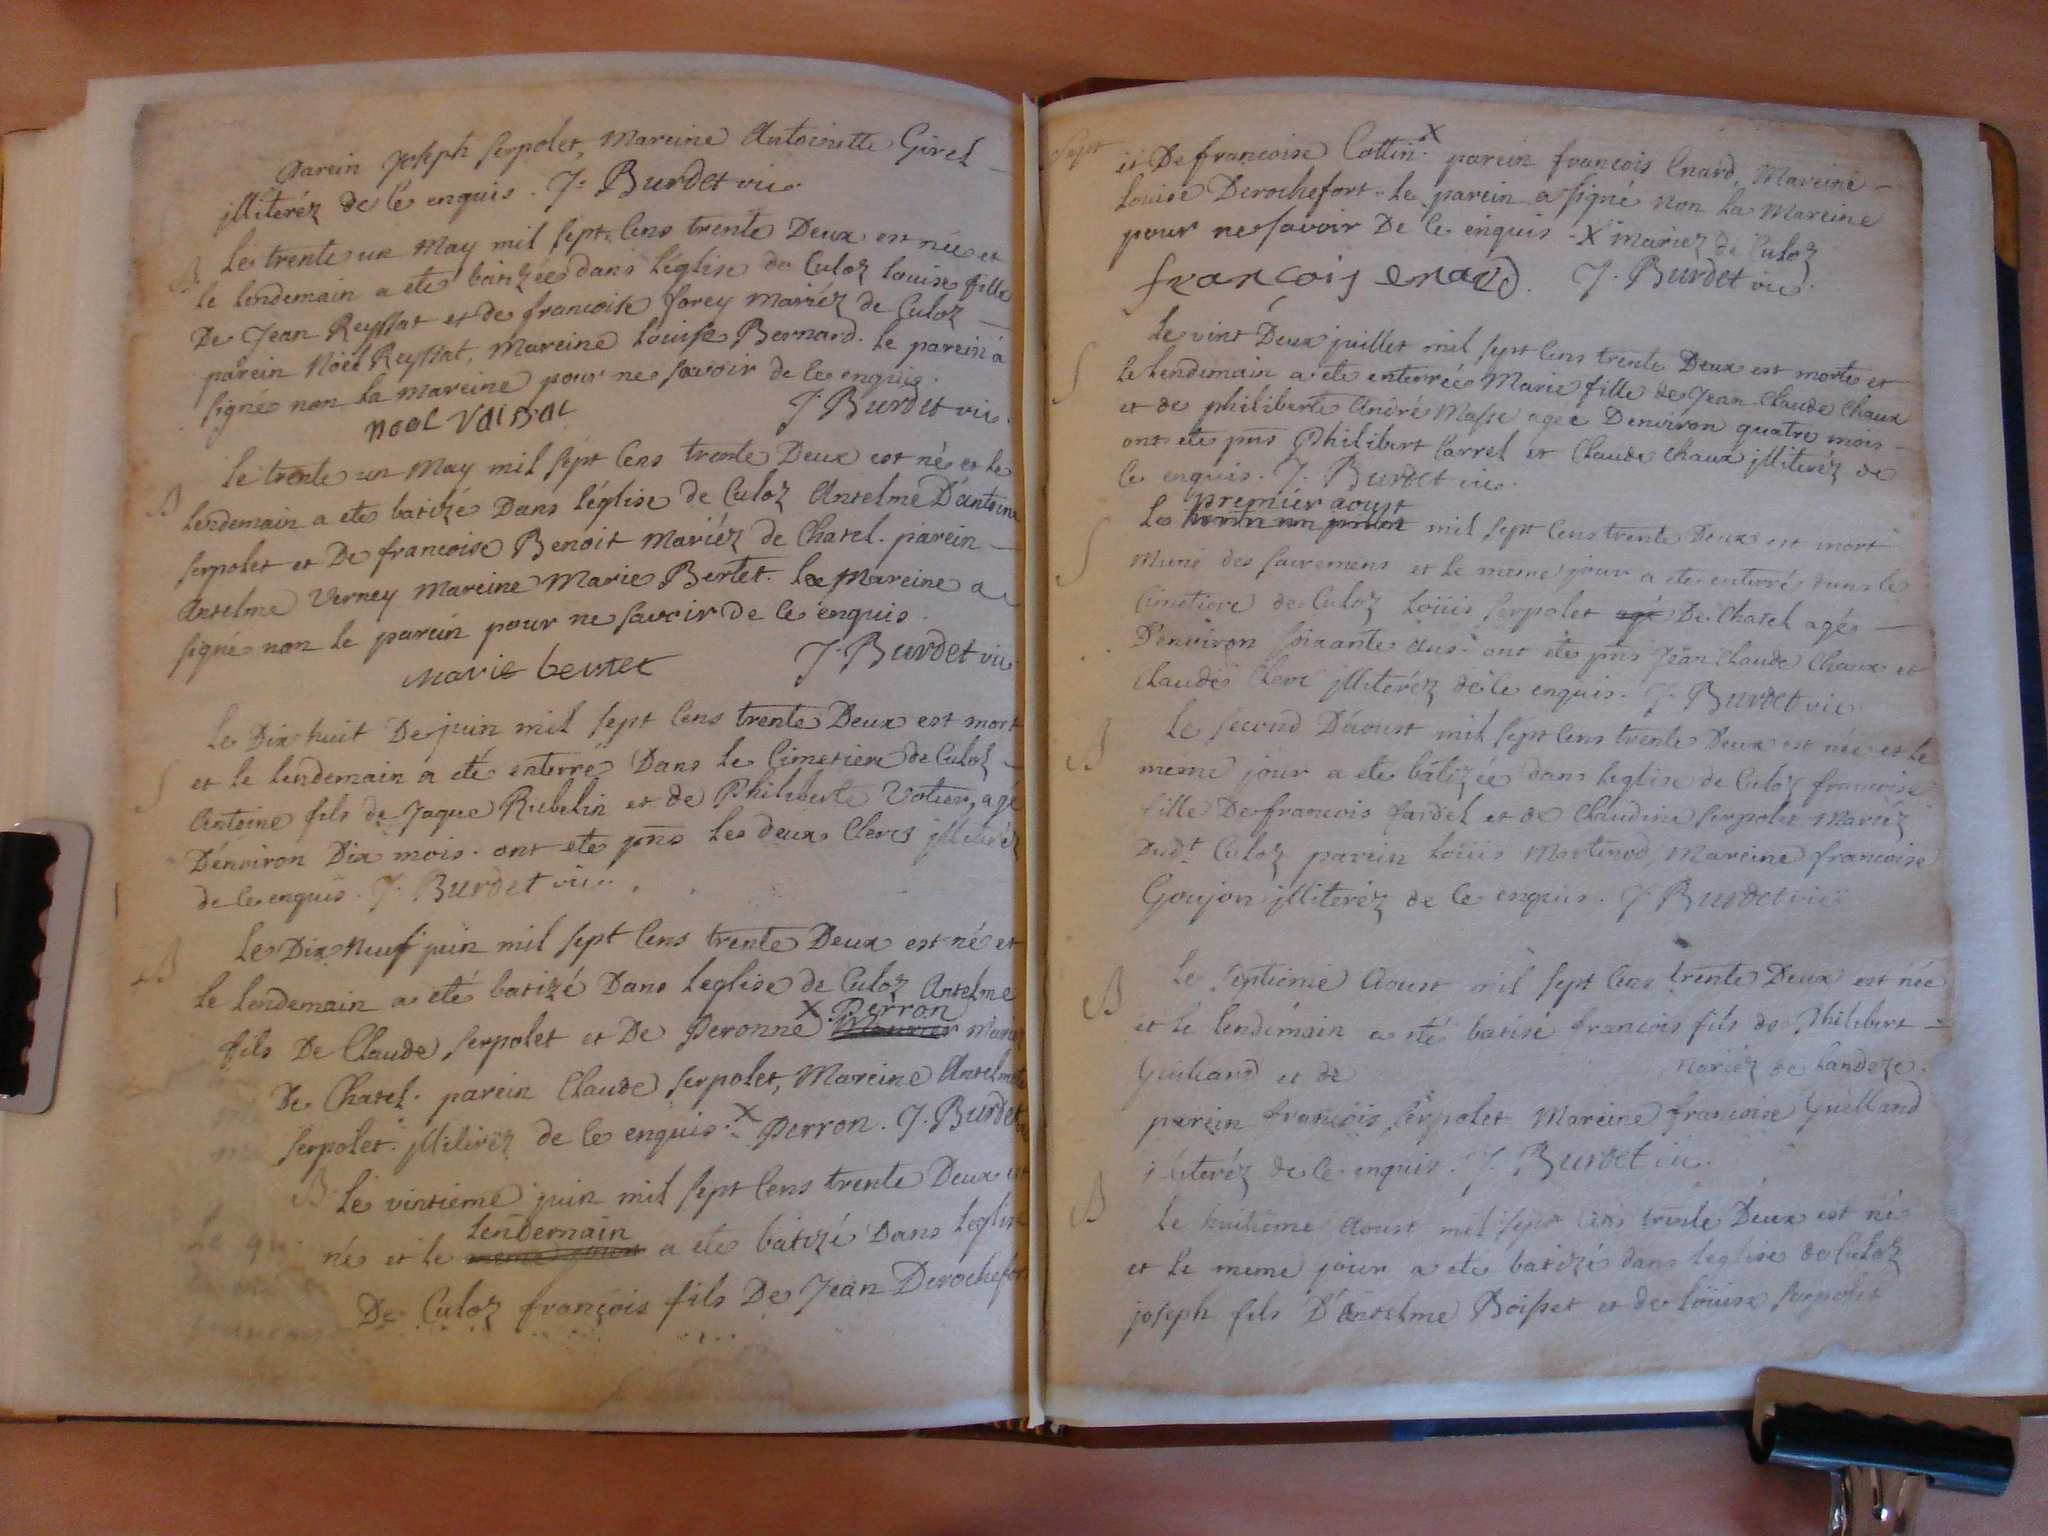 parein Joseph Serpolet, Mareine Antoinette Girel
illiteréz de ce enquis. J. Burdet vic.
B
Le trente un May mil sept Cens trente Deux est née et
le lendemain a eté batizée dans l'église de Culoz Louise fille
De Jean Reyssat et de francoise forey Mariéz de Culoz
parein Noël Reyssat, Mareine Louise Bernard. le parein a
signé non la mareine pour ne savoir de ce enquis.
J. Burdet vic.
B
Le trente un May mil sept Cens trente Deux est né et le
lendemain a eté batizé Dans l'église de Culoz Anselme D'antoine
Serpolet et De francoise Benoit Mariéz de Chatel. parein
Anselme Verney Mareine Marie Bertet. la Mareine a
signé non le parein pour ne savoir de ce enquis.
marie bertet J. Burdet vic
S
Le Dix huit De juin mil sept Cens trente Deux est mort
et le lendemain a eté enterré Dans le Cimetiere de Culoz
Antoine fils de Jaque Rubelin et de Philiberte Votier, agé
D'environ Dix mois. ont eté pns les deux Clercs illiteréz
de ce enquis. J. Burdet vic.
B
Le Dix Neuf juin mil sept Cens trente Deux est né et
le lendemain a eté batizé Dans l'eglise de Culoz Anselme
x Perron
fils De Claude Serpolet et De Peronne mariez
De Chatel. parein Claude Serpolet, Mareine Anselmete
Serpolet. illiteréz de ce enquis. x Perron. J. Burdet
B
Le vintieme juin mil sept Cens trente Deux est
lendemain
né et le meme jour a eté batizé Dans l'eglise
De Culoz françois fils De Jean Derochefort
et De francoise Cottin x parein francois Enard, Mareine
Louise Derochefort. le parein a signé non la Mareine
pour ne savoir De ce enquis. x mariez de Culoz
françois enard. J. Burdet vic.
S
Le vint Deux juillet mil sept Cens trente Deux est morte et
le lendemain a eté enterrée Marie fille de Jean Claude Chaux
et de philiberte André Masse agée D'environ quatre mois
ont eté pns Philibert Carrel et Claude Chaux illiteréz de
ce enquis. J. Burdet vic.
premier aoust
S
Le mil sept Cens trente Deux est mort
Muni des sacremens et le meme jour a eté enterré dans le
Cimetiere de Culoz Loüis Serpolet agé De Chatel agé
D'environ soixante ans. ont eté pns Jean Claude Chaux et
Claude Clerc illiteréz de ce enquis. J. Burdet vic
B
Le second D'aoust mil sept Cens trente Deux est née et le
meme jour a eté batizée dans l'eglise de Culoz francoise
fille De francois fardel et de Claudine Serpolet Mariéz
Dud.t Culoz parein Loüis Martinod, Mareine francoise
Goujon illiteréz de ce enquis. J. Burdet vic
B
Le septieme Aoust mil sept Cens trente Deux est née
et le lendemain a eté batisé francois fils de Philibert
Guilland et de Mariéz de Landeze.
parein francois Serpolet Mareine francoise Guilland
illiteréz de ce enquis. J. Burdet vic.
B
Le huitieme Aoust mil sept Cens trente Deux est né
et le meme jour a eté batizé dans l'eglise de Culoz
joseph fils D'Anselme Boisset et de Loüise Serpolet